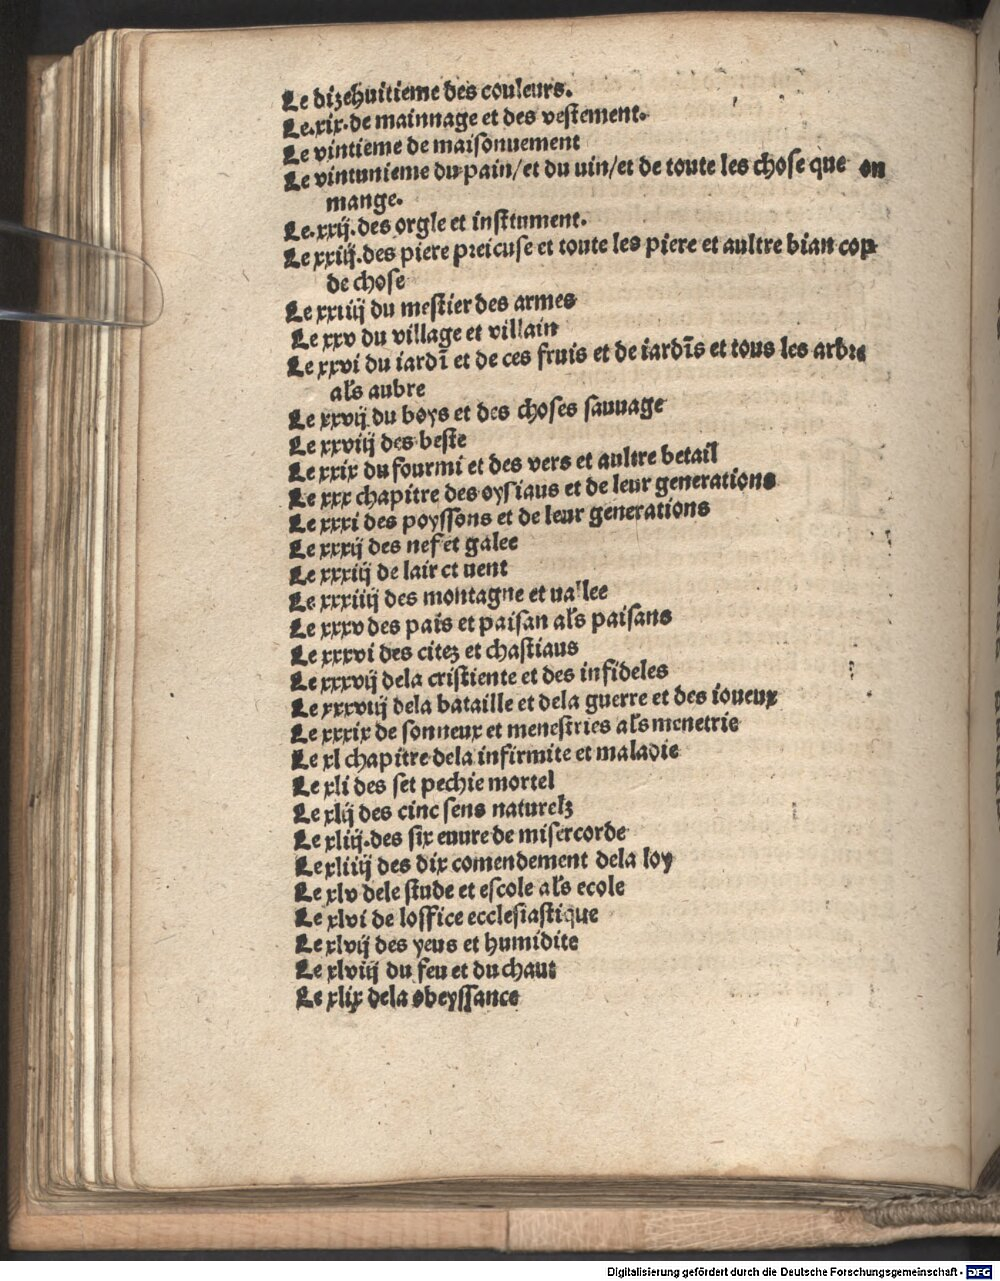 Le dizehuitieme des couleurs.
Le.xix.de mainnage et des veſtement.
Le vintieme de maiſonuement
Le vintunieme du pain/et du uin/et de toute les choſe que on
mange.
Le.xxij.des orgle et inſtrument.
Le xxiij.des piere preicuſe et toute les piere et aultre bian cop
de choſe
Le xxiiij du meſtier des armes
Le xxv du village et villain
Le xxvi du iardī et de ces fruis et de iardīs et tous les arbre
als aubre
Le xxvij du boys et des choſes ſauuage
Le xxviij des beſte
Le xxix du fourmi et des vers et aultre betail
Le xxx chapitre des oyſiaus et de leur generations
Le xxxi des poyſſons et de leur generations
Le xxxij des nef et galee
Le xxxiij de lair et uent
Le xxxiiij des montagne et uallee
Le xxxv des pais et paiſan als paiſans
Le xxxvi des citez et chaſtiaus
Le xxxvij dela criſtiente et des infideles
Le xxxviij dela bataille et dela guerre et des ioueux
Le xxxix de ſonneux et meneſtries als menetrie
Le xl chapitre dela infirmite et maladie
Le xli des ſet pechie mortel
Le xlij des cinc ſens naturelz
Le xliij.des ſix euure de miſercorde
Le xliiij des dix comendement dela loy
Le xlv dele ſtude et eſcole als ecole
Le xlvi de loffice eccleſiaſtique
Le xlvij des yeus et humidite
Le xlviij du feu et du chaut
Le xlix dela obeyſſance
Digitalisierung gefördert durch die Deutsche Forschungsgemeinschaft - DFG